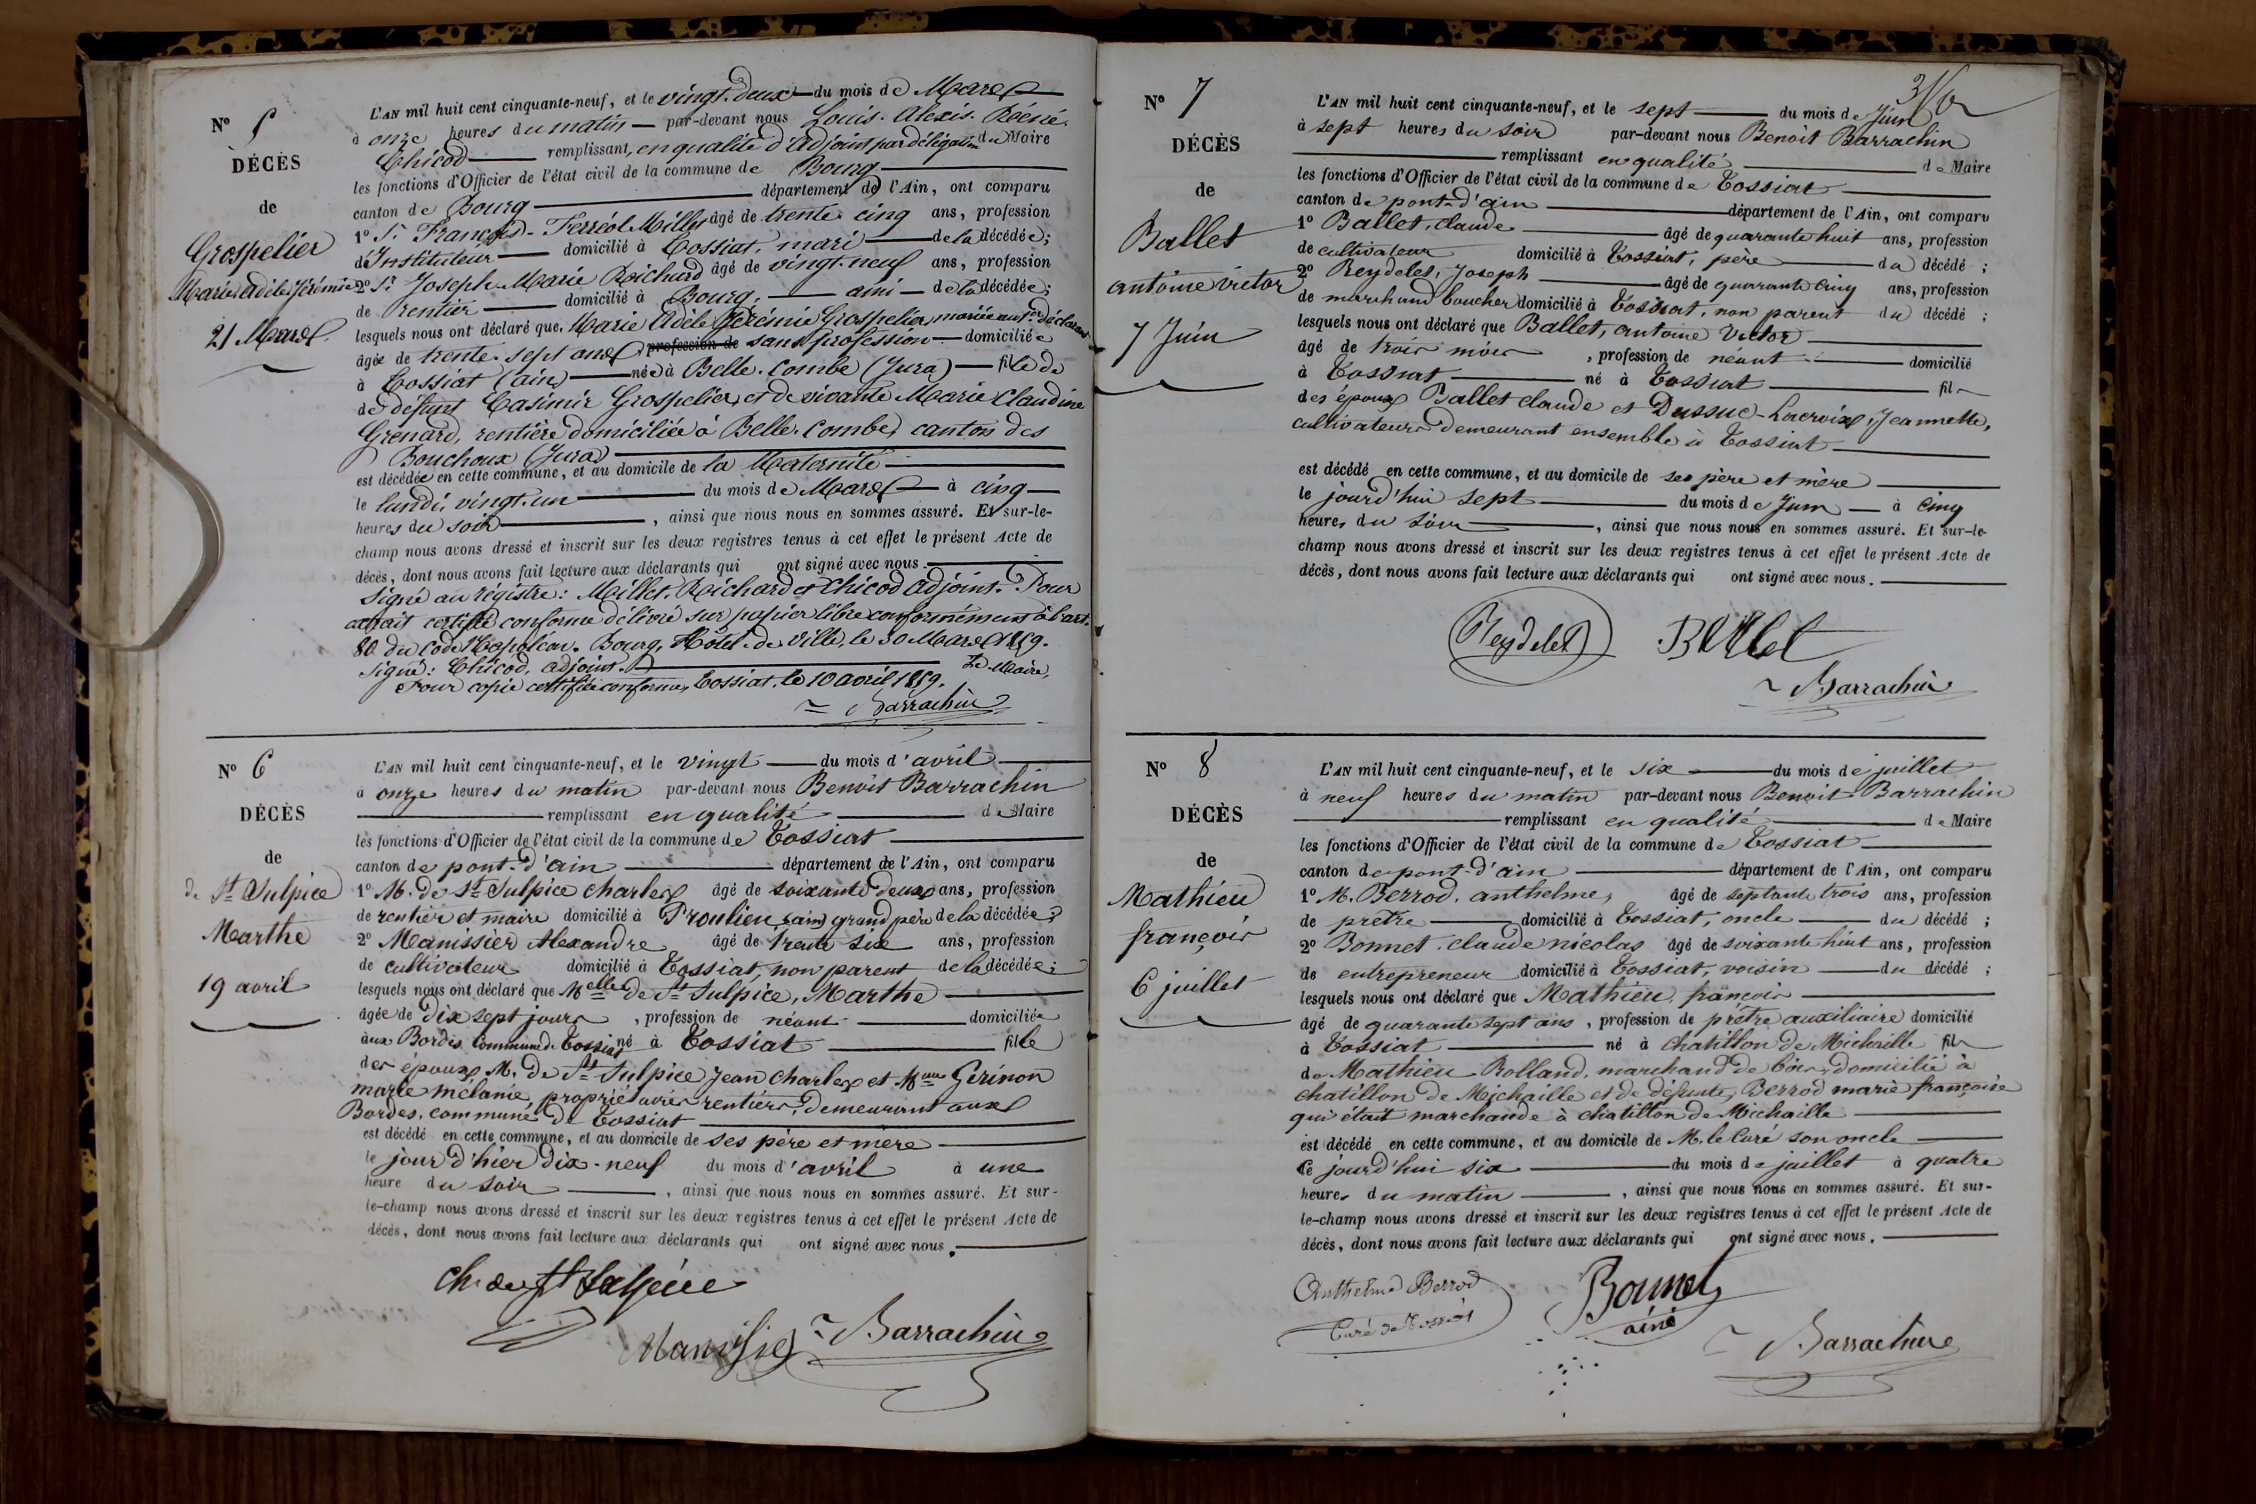 N° 5
DÉCÈS
de
Grospelier
Marie adèle Jérémie
21 Mars.
L'AN mil huit cent cinquante-neuf, et le vingt-deux du mois de Mars
à onze heures du matin par-devant nous Louis. Alexis. Réené.
Chicod remplissant, en qualité d'adjoint par délégation du Maire
les fonctions d'Officier de l'état civil de la commune de Bourg
canton de Bourg département de l'Ain, ont comparu
1° Sr François-Ferréol Millet âgé de trente cinq ans, profession
d'Instituteur domicilié à Tossiat, mari de la décédée;
2° Sr Joseph-Marie Roichard âgé de vingt-neuf ans, profession
de Rentier domicilié à Bourg, ami de la décédée;
lesquels nous ont déclaré que Marie Adèle Jérémie Grospelier, mariée au 1er déclarant
âgée de trente-sept ans profession de sans profession domiciliée
à Tossiat (ain) née à Belle-Combe (Jura) fille de
de défunt Casimir Grospelier, et de vivante Marie Claudine
Grenard, rentière domiciliée à Belle-Combe, canton des
Bouchoux (Jura)
est décédée en cette commune, et au domicile de la Maternité
le lundi, vingt-un du mois de Mars à cinq
heures du soir, ainsi que nous nous en sommes assuré. Et sur-le-
champ nous avons dressé et inscrit sur les deux registres tenus à cet effet le présent Acte de
décès, dont nous avons fait lecture aux déclarants qui ont signé avec nous.
Signé au régistre: Millet, Roichard et Chicod adjoint. Pour
extrait certifié conforme délivré sur papier libre conformément à l'art.
80 du Code Napoléon. Bourg, Hôtel de Ville, le 30 Mars 1859.
Signé: Chicod, adjoint.
Pour copie certifiée conforme, Tossiat, le 10 avril 1859. Le Maire,
Barrachin
N° 6
DÉCÈS
de
de St Sulpice
Marthe
19 avril
L'AN mil huit cent cinquante-neuf, et le vingt du mois d'avril
à onze heures du matin par-devant nous Benoit Barrachin
remplissant en qualité de Maire
les fonctions d'Officier de l'état civil de la commune de Tossiat
canton de pont-d'ain département de l'Ain, ont comparu
1° M. de St Sulpice Charles âgé de soixante deux ans, profession
de rentier et maire domicilié à Proulieu, (ain) grand père de la décédée;
2° Manissier Alexandre âgé de trente six ans, profession
de cultivateur domicilié à Tossiat, non parent de la décédée;
lesquels nous ont déclaré que Melle de St Sulpice, Marthe
âgée de dix sept jours, profession de néant domiciliée
aux Bordes Commune de Tossiat né à Tossiat fille
des époux M. de St Sulpice Jean Charles et Mme Gerinon
marie mélanie, propriétaires rentiers, demeurant aux
Bordes, commune de Tossiat
est décédé en cette commune, et au domicile de ses père et mère
le jour d'hier dix-neuf du mois d'avril à une
heure du soir, ainsi que nous nous en sommes assuré. Et sur-
le-champ nous avons dressé et inscrit sur les deux registres tenus à cet effet le présent Acte de
décès, dont nous avons fait lecture aux déclarants qui ont signé avec nous.
Ch. de St Sulpice
Manissier Barrachin
N° 7
DÉCÈS
de
Ballet
antoine victor
7 Juin
L'AN mil huit cent cinquante-neuf, et le sept du mois de Juin
à sept heures du soir par-devant nous Benoit Barrachin
remplissant en qualité de Maire
les fonctions d'Officier de l'état civil de la commune de Tossiat
canton de pont-d'ain département de l'Ain, ont comparu
1° Ballet, claude âgé de quarante huit ans, profession
de cultivateur domicilié à Tossiat, père du décédé;
2° Reydelet, Joseph âgé de quarante cinq ans, profession
de marchand boucher domicilié à Tossiat, non parent du décédé;
lesquels nous ont déclaré que Ballet, antoine Victor
âgé de trois mois, profession de néant domicilié
à Tossiat né à Tossiat fils
des époux Ballet claude et Dussuc-Lacroix, Jeannette,
cultivateurs demeurant ensemble à Tossiat
est décédé en cette commune, et au domicile de ses père et mère
le jourd'hui sept du mois de Juin à cinq
heures du soir, ainsi que nous nous en sommes assuré. Et sur-le-
champ nous avons dressé et inscrit sur les deux registres tenus à cet effet le présent Acte de
décès, dont nous avons fait lecture aux déclarants qui ont signé avec nous.
Reydelet Ballet
Barrachin
N° 8
DÉCÈS
de
Mathieu
françois
6 juillet
L'AN mil huit cent cinquante-neuf, et le six du mois de juillet
à neuf heures du matin par-devant nous Benoit Barrachin
remplissant en qualité de Maire
les fonctions d'Officier de l'état civil de la commune de Tossiat
canton de pont-d'ain département de l'Ain, ont comparu
1° M. Berrod, anthelme, âgé de septante trois ans, profession
de prêtre domicilié à Tossiat, oncle du décédé;
2° Bonnet, claude nicolas âgé de soixante huit ans, profession
de entrepreneur domicilié à Tossiat, voisin du décédé;
lesquels nous ont déclaré que Mathieu, françois
âgé de quarante sept ans, profession de prêtre auxiliaire domicilié
à Tossiat né à Chatillon de Michaille fils
de Mathieu Rolland, marchand de bois, domicilié à
chatillon de Michaille et de défunte, Berrod marie françoise
qui était marchande à chatillon de Michaille
est décédé en cette commune, et au domicile de M. le Curé son oncle
Ce jourd'hui six du mois de juillet à quatre
heures du matin, ainsi que nous nous en sommes assuré. Et sur-
le-champ nous avons dressé et inscrit sur les deux registres tenus à cet effet le présent Acte de
décès, dont nous avons fait lecture aux déclarants qui ont signé avec nous.
Anthelme Berrod Bonnet
Curé de Tossiat ainé
Barrachin